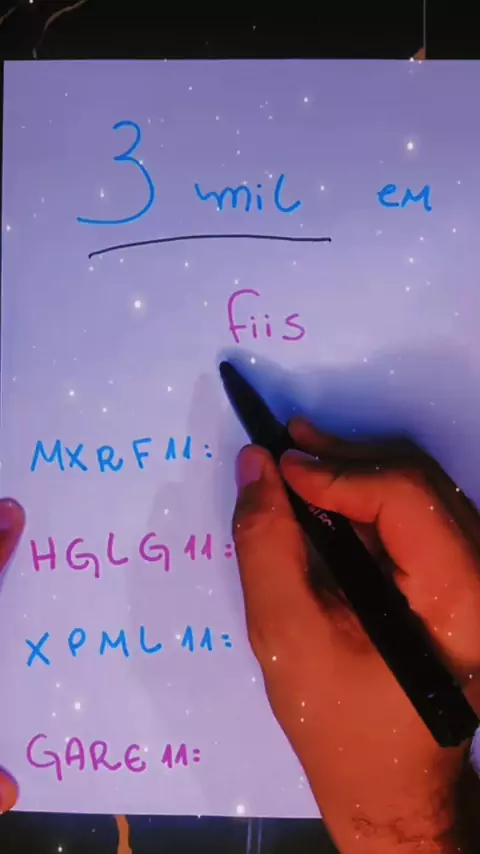 3 mil em
fiis
MXRF11:
HGLG11:
XPML11:
GARE11: